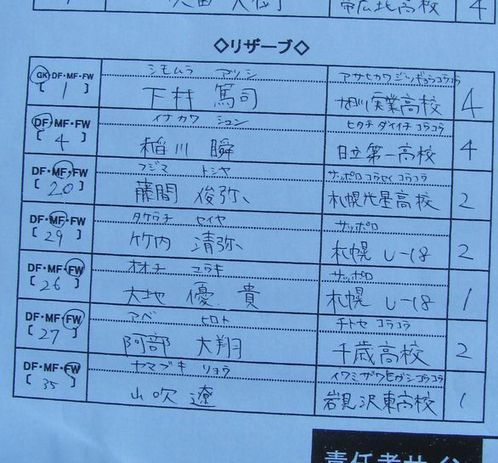 帯広北高校 4
◇リザーブ◇
GK・DF・MF・FW シモムラ アツシ アサヒカワジツギョウコウコウ
[ 1 ] 下村 篤司 旭川実業高校 4
DF・MF・FW イナカワ シュン ヒタチ ダイイチ コウコウ
[ 4 ] 稲川 瞬 日立第一高校 4
DF・MF・FW フジマ トシヤ サッポロコウセイ コウコウ
[ 20 ] 藤間 俊弥 札幌光星高校 2
DF・MF・FW タケウチ セイヤ サッポロ
[ 29 ] 竹内 清弥 札幌 U-18 2
DF・MF・FW オオチ ユウキ サッポロ
[ 26 ] 大地 優貴 札幌 U-18 1
DF・MF・FW アベ ヒロト チトセ コウコウ
[ 27 ] 阿部 大翔 千歳高校 2
DF・MF・FW ヤマブキ リョウ イワミザワヒガシコウコウ
[ 35 ] 山吹 遼 岩見沢東高校 1
責任者サイン